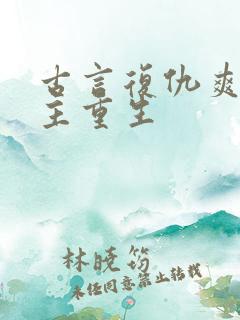 古言復仇爽
主重生
林曉筠
未经同意禁止转载